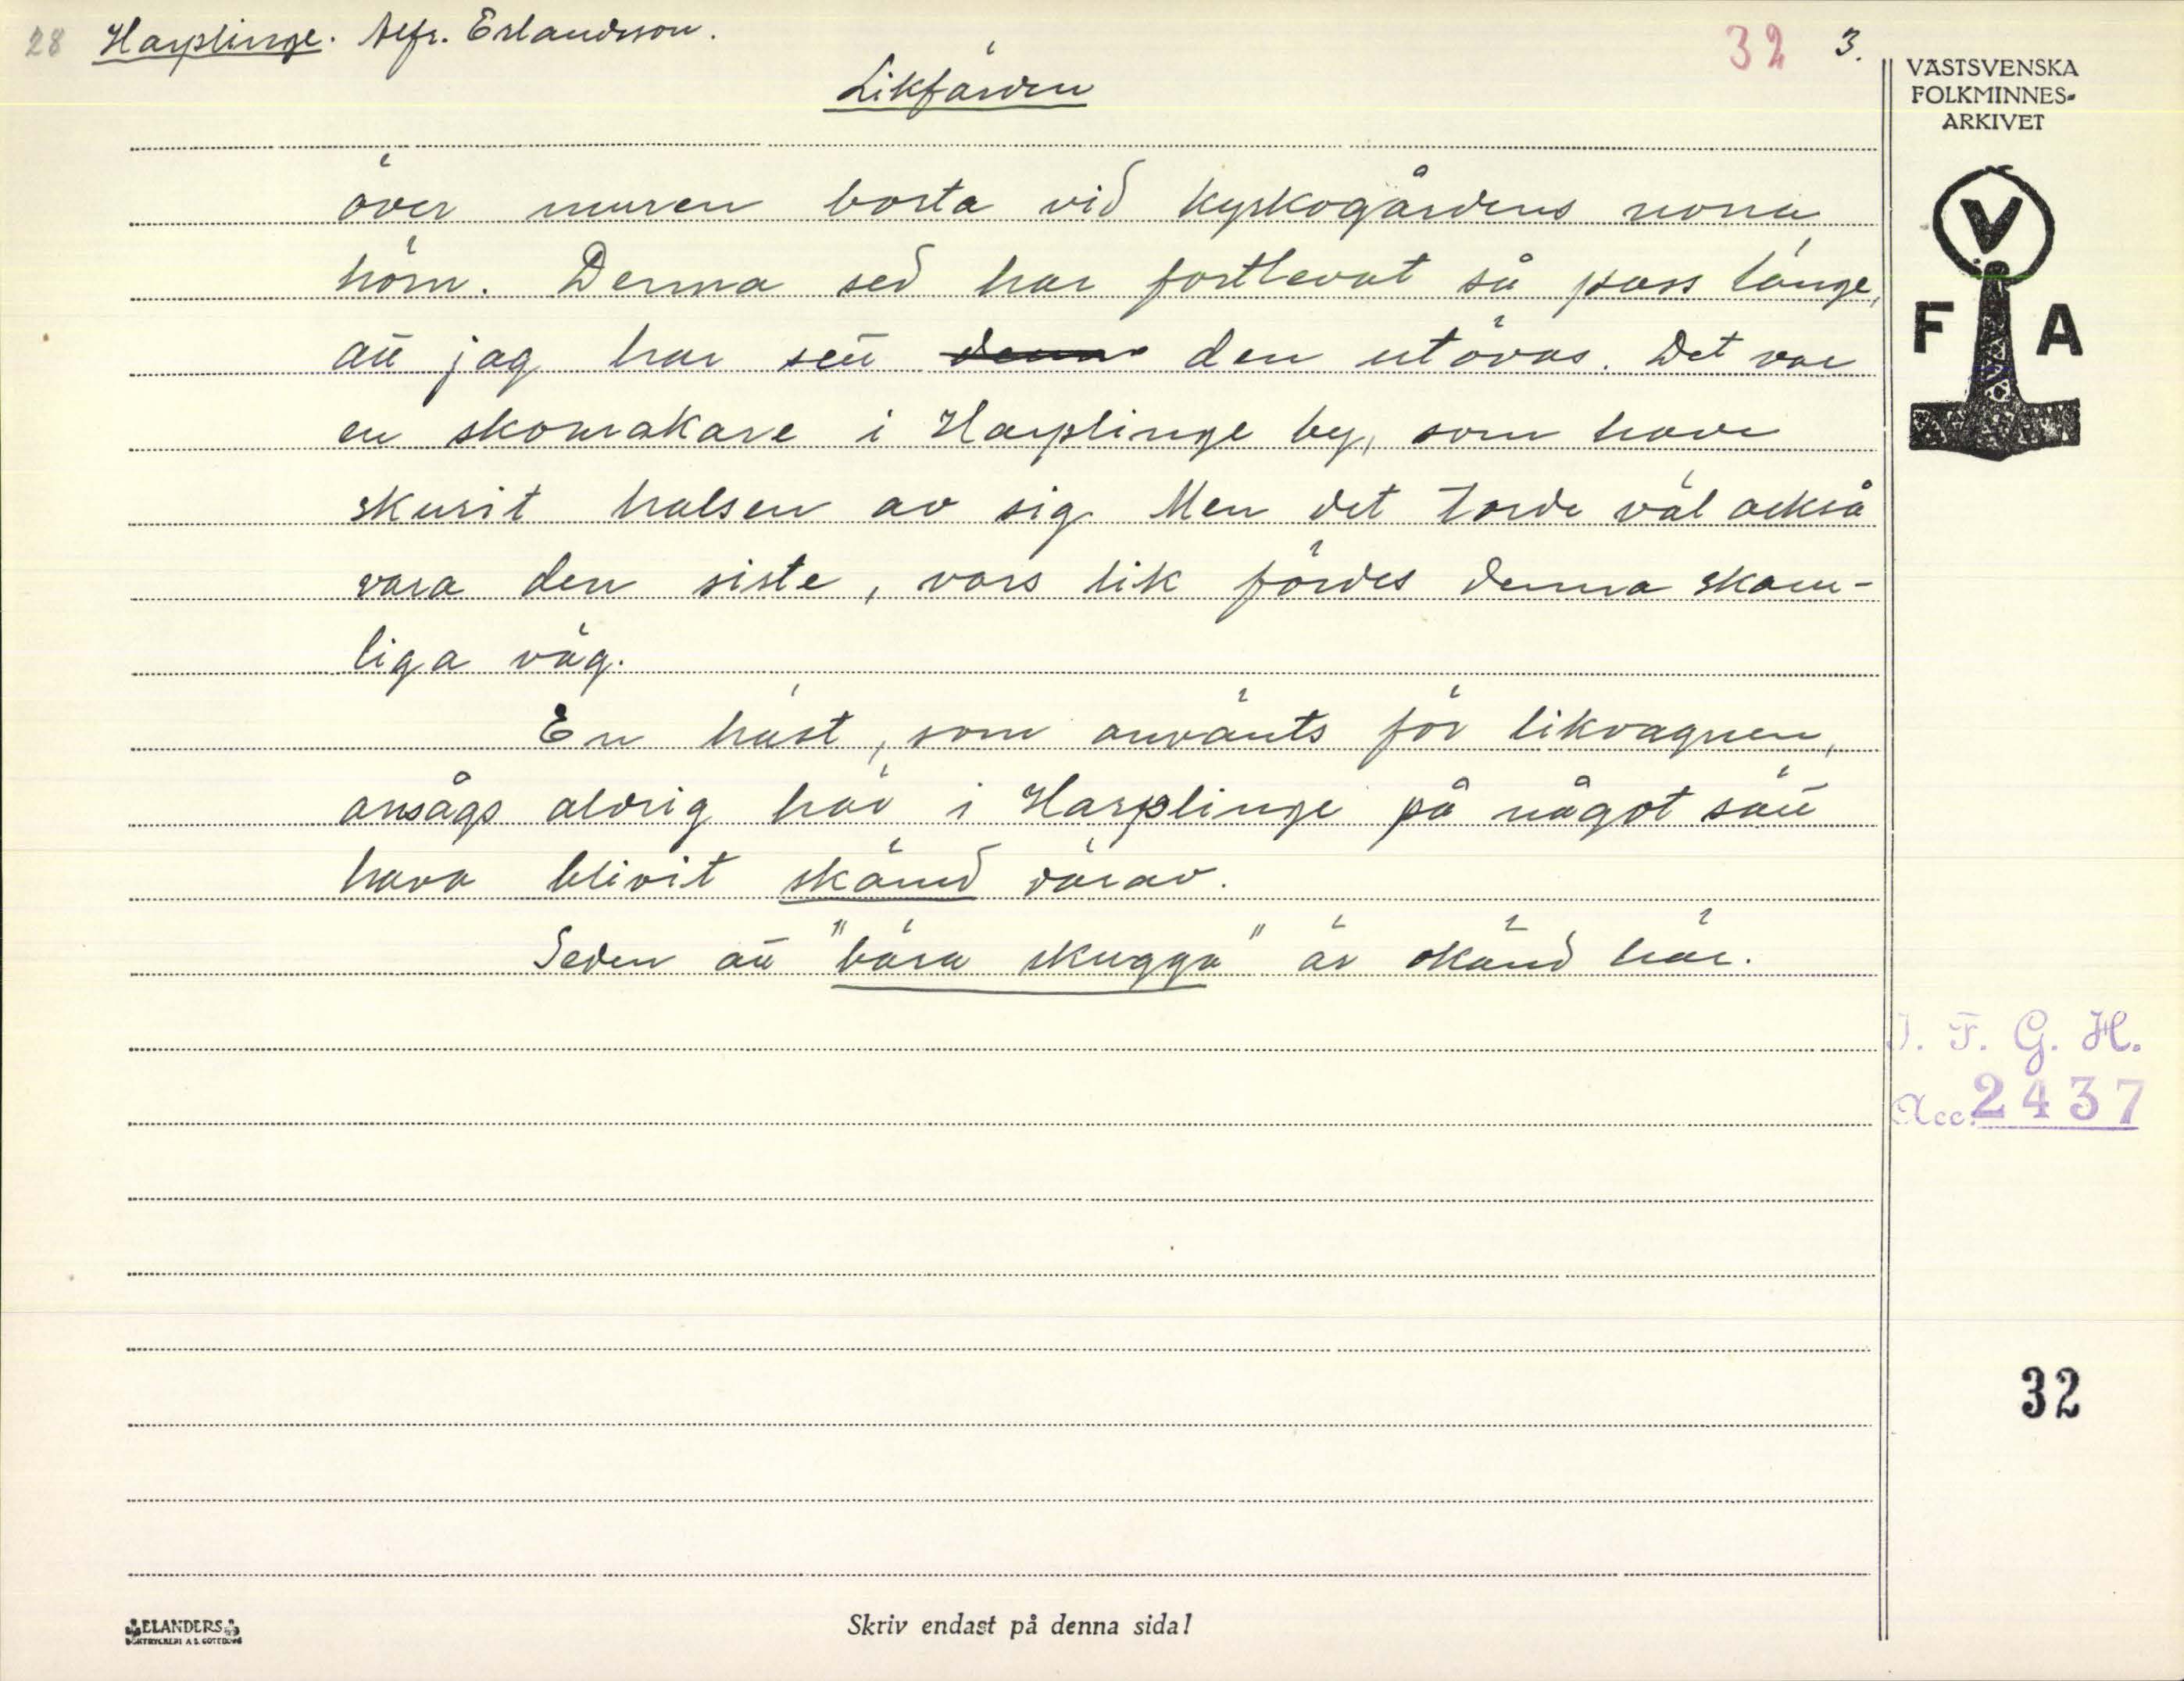 28 Harplinge. Alfr. Erlandsson.
32 3.
Likfärden
VÄSTSVENSKA
FOLKMINNES-
ARKIVET
V
F A
över muren borta vid kyrkogårdens norra
hörn. Denna sed har fortlevat så pass länge,
att jag har sett denna den utövas. Det var
en skomakare i Harplinge by, som hade
skurit halsen av sig. Men det torde väl också
vara den siste, vars lik fördes denna skam-
liga väg.
En häst, som använts för likvagnen,
ansågs aldrig här i Harplinge på något sätt
hava blivit skämd därav.
Seden att "bära skugga" är okänd här.
I. F. G. H.
Acc. 2437
32
ELANDERS
BOKTRYCKERI A.B. GÖTEBORG
Skriv endast på denna sida!